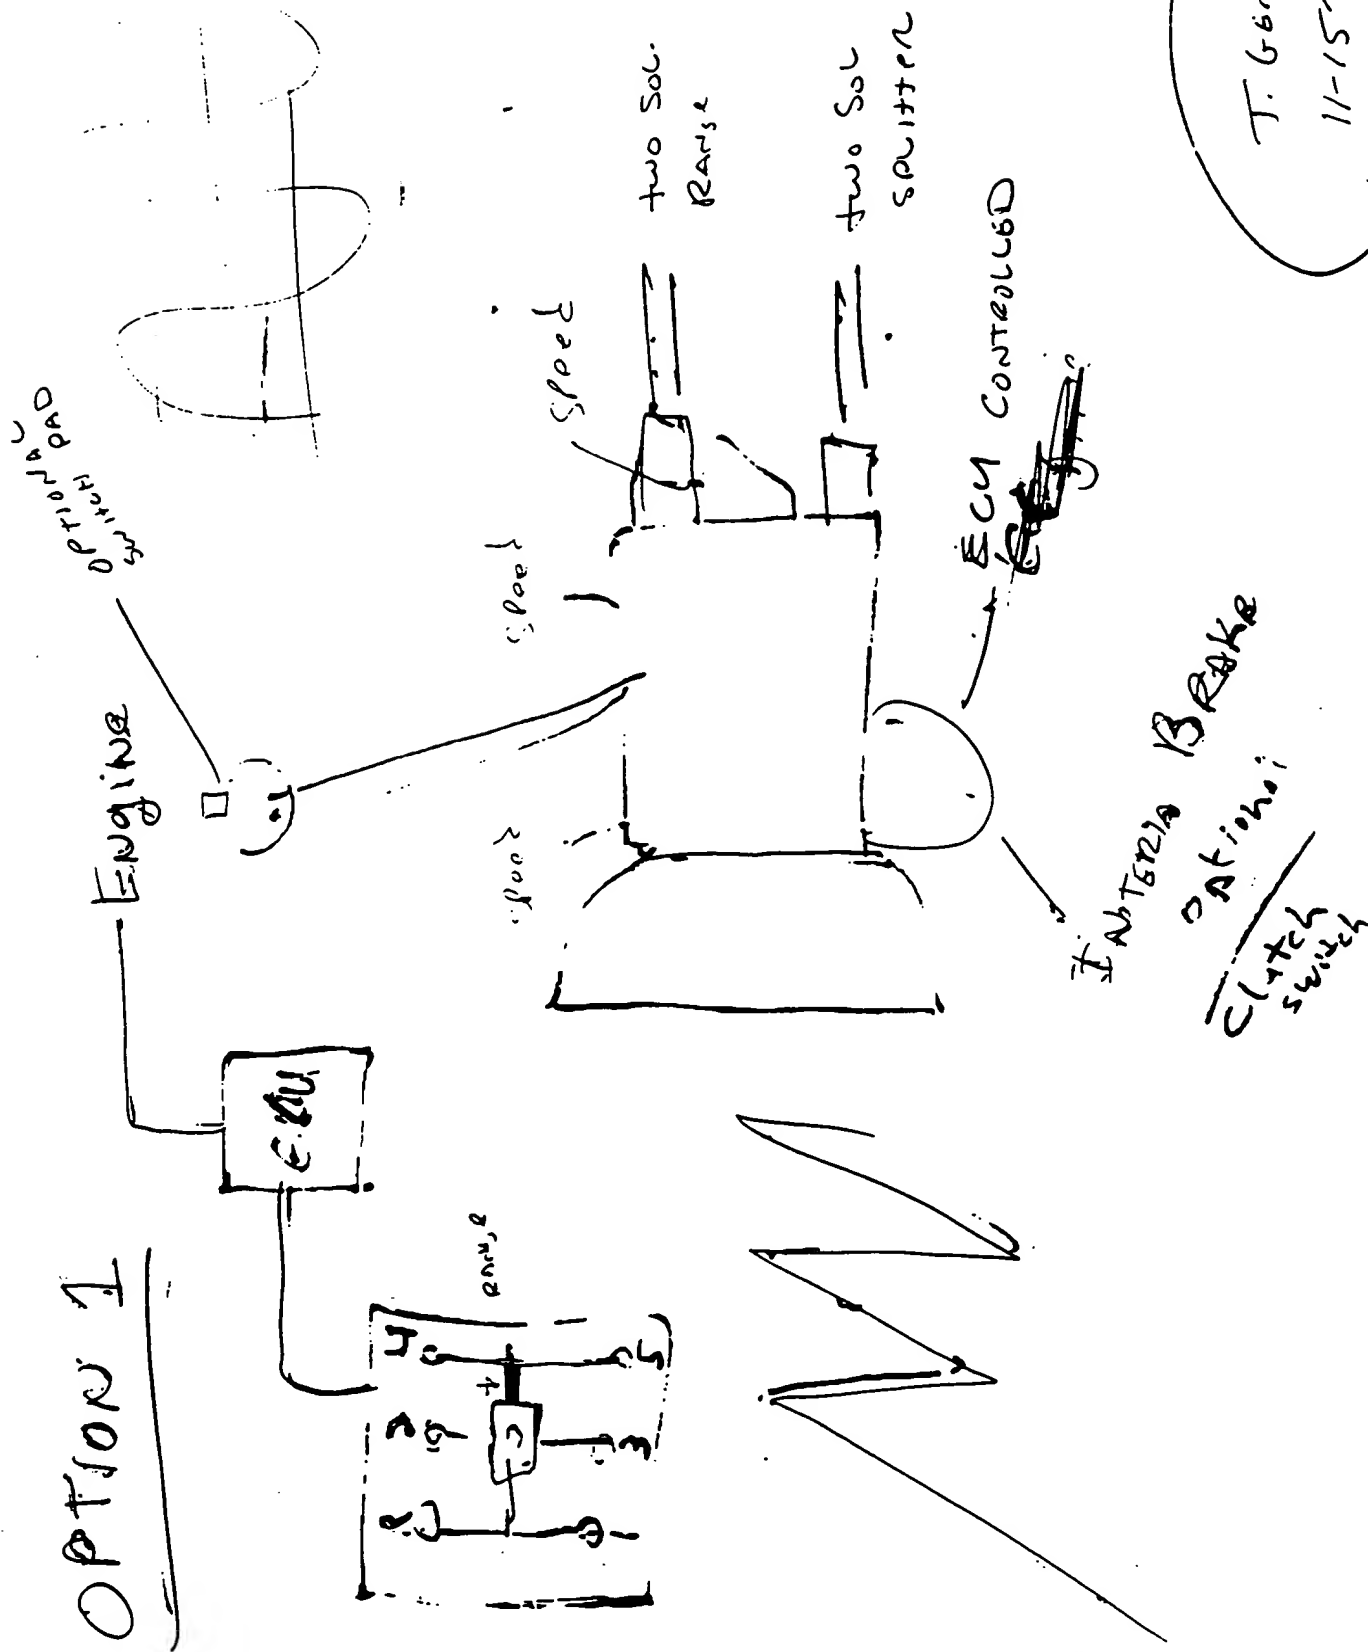 OPTION 1
Engine
OPTIONAL
SWITCH PAD
E.CU
R 2 4
1 3 5
RANGE
Speed
Speed
Speed
two SOL.
RANGE
two SOL
SPLITTER
ECU CONTROLLED
BRAKE
Clutch
switch
T. GEN
11-15-